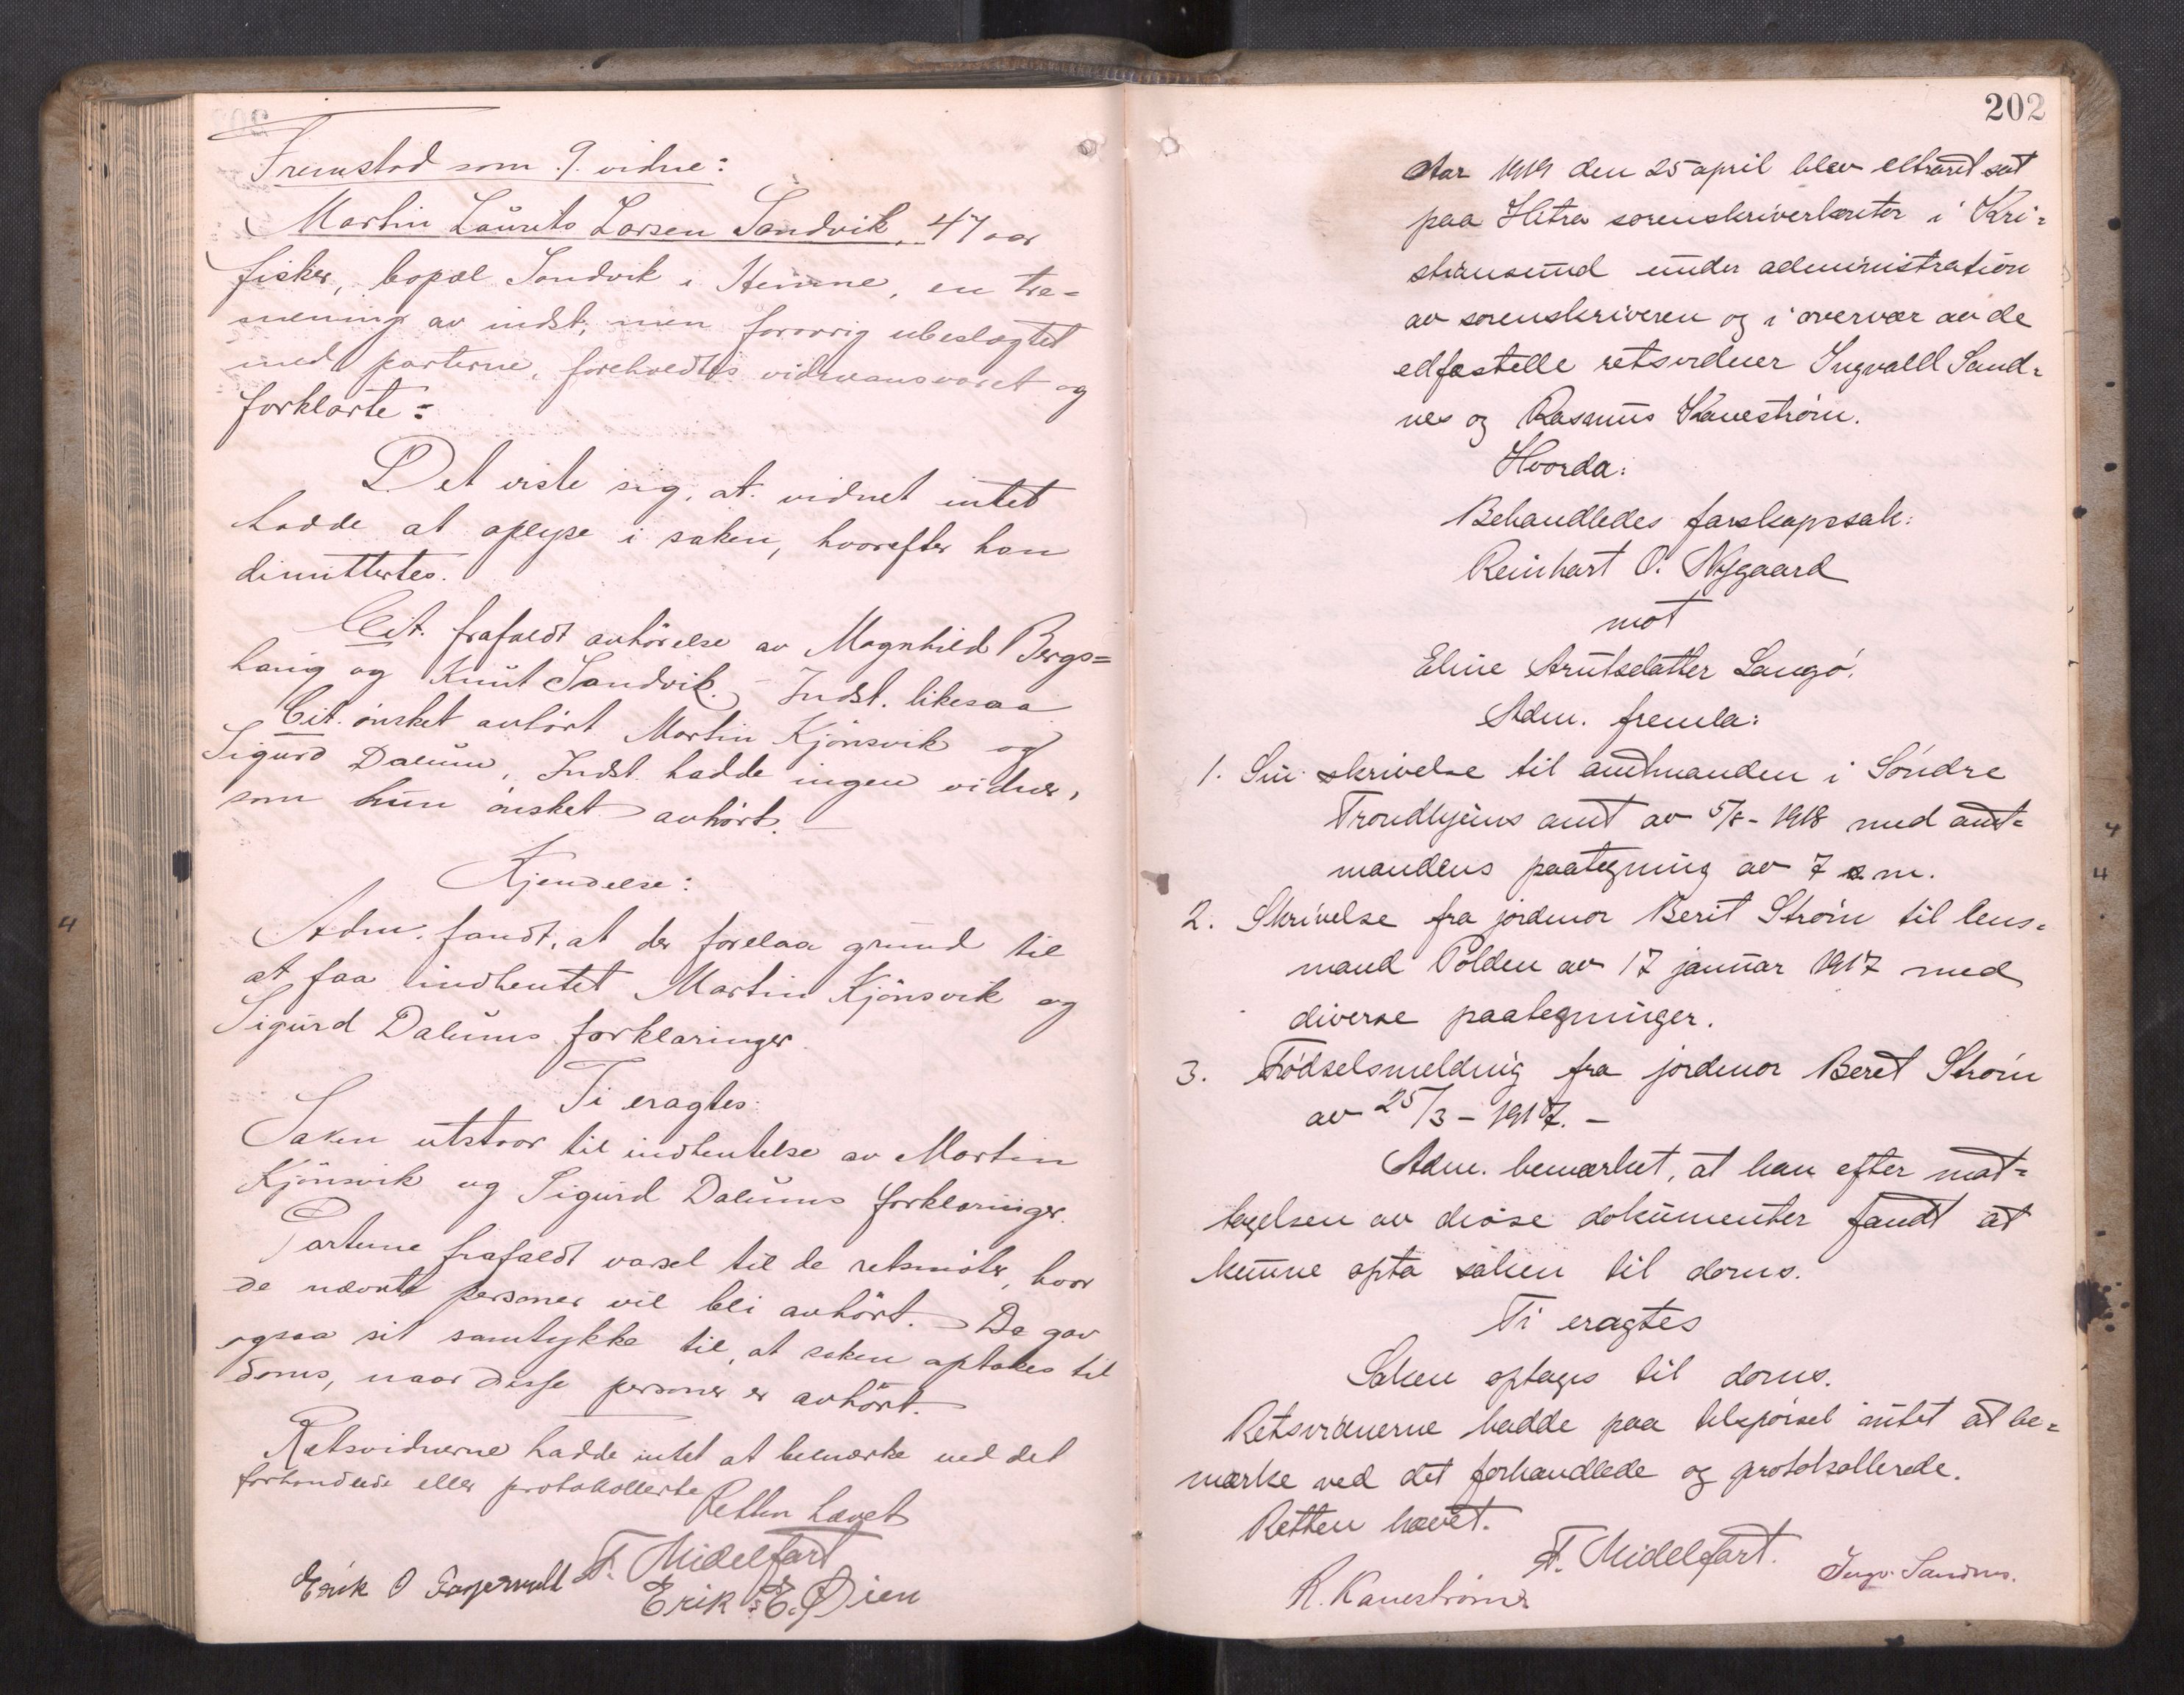 Fremstod som 9. vidne:
Martin Laurits Larsen Sandvik, 47 aar
fisker, bopæl Sandvik i Hemne, en tre=
mening av indst, men forøvrig ubeslægtet
med parterne, foreholdtes vidneansvaret og
forklarte:
Det viste sig, at vidnet intet
hadde at oplyse i saken, hvorefter han
dimittertes.
Cit. frafaldt avhörelse av Magnhild Bergs=
haug og Knut Sandvik. - Indst. likesaa
Cit. önsket avhört Martin Kjönsvik og
Sigurd Dalum, Indst. hadde ingen vidner,
som hun önsket avhört. -
Kjendelse:
Adm. fandt, at der forelaa grund til
at faa indhentet Martin Kjönsvik og
Sigurd Dalums forklaringer.
Ti eragtes:
Saken utstaar til indhentelse av Martin
Kjönsvik og Sigurd Dalums forklaringer.
Parterne frafaldt varsel til de retsmöter, hvor
de nævnte personer vil bli avhört. De gav
ogsaa sit samtykke til, at saken optakes til
doms, naar disse personer er avhört.
Retsvidnerne hadde intet at bemerke ved det
forhandlede eller protokollerte
Retten hævet
F. Midelfart
Erik O
Erik E. Øien
202
Aar 1919 den 25 april blev ekstraret sat
paa Hitra sorenskriverkontor i Kri=
stiansund under administration
av sorenskriveren og i overvær av de
edfæstelle retsvidner Ingvald Sand=
nes og Rasmus Kanestrøm.
Hvorda:
Behandledes farskapssak:
Reinhart O. Nygaard
mot
Eline Arntsdatter Langö.
Adm. fremla:
1. Sin skrivelse til amtmanden i Söndre
Trondhjems amt av 5/8 - 1918 med amt=
mandens paategning av 7 s. m.
2. Skrivelse fra jordmor Berit Strøm til lens=
mand Polden av 17 januar 1917 med
diverse paategninger.
3. Födselsmelding fra jordmor Beret Strøm
av 25/3 - 1917. -
Adm. bemærket, at han efter mot=
tagelsen av disse dokumenter fandt at
kunne opta saken til doms.
Ti eragtes
Saken optages til doms.
Retsvidnerne hadde paa tilspörsel intet at be=
mærke ved det forhandlede og protokollerede.
Retten hævet.
F. Midelfart.
Ingv. Sandnes.
R. Kanestrøm